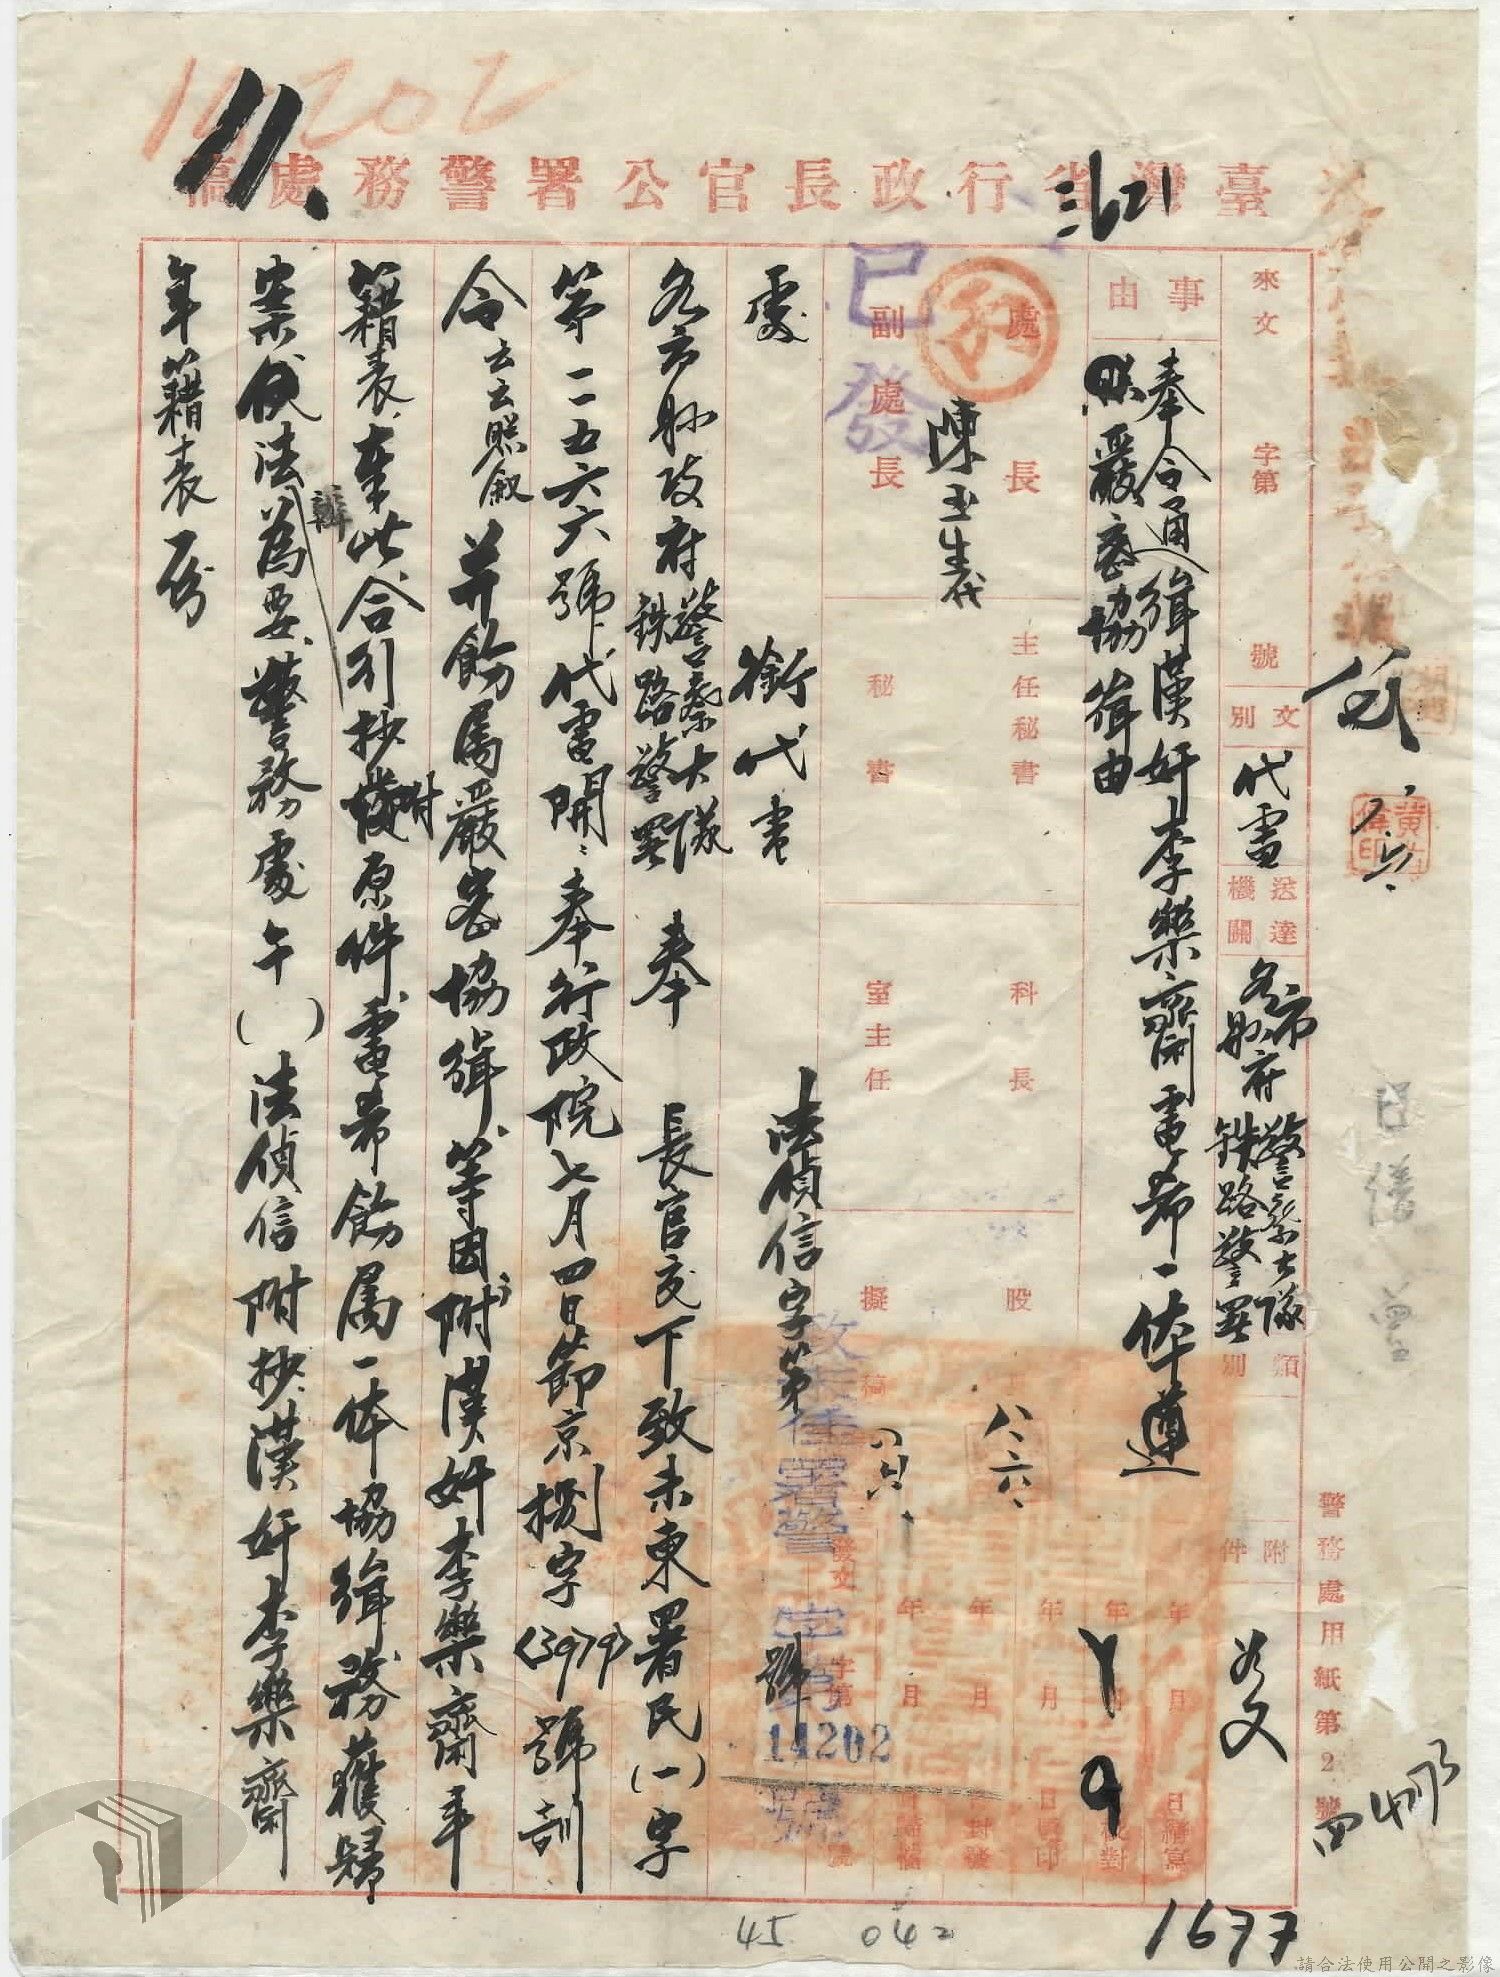 14202
臺灣省行政長官公署警務處稿
3621
來文 字第 號
文別 代電
送達機關 各縣市府 警察大隊 鐵路警署
類別
附件 如文
事由
奉令通緝漢奸李樂齋電希一体遵
照嚴密協緝由
處長
副處長
陳玉生代
已發
主任秘書
秘書
科長
室主任
股長
擬稿
八、六、
年 月 日繕寫
年 月 日校對
年 月 日監印
年 月 日封發
年 月 日歸檔
發文 字第 號
14202
處 銜代電 法偵信字第 號
各市縣政府 警察大隊 鐵路警署 奉 長官交下致未東署民(一)字
第一二五六六號代電開、奉行政院七月四日節京捌字(3979)號訓
令云云照敘并飭属嚴密協緝、等因、附漢奸李樂齋年
籍表、奉此合引抄附原件電希飭属一体協緝務獲歸
案依法辦為要、警務處午( )法偵信附抄漢奸李樂齋
年籍表一份
警務處用紙第2號
45 042
1677
請合法使用公開之影像